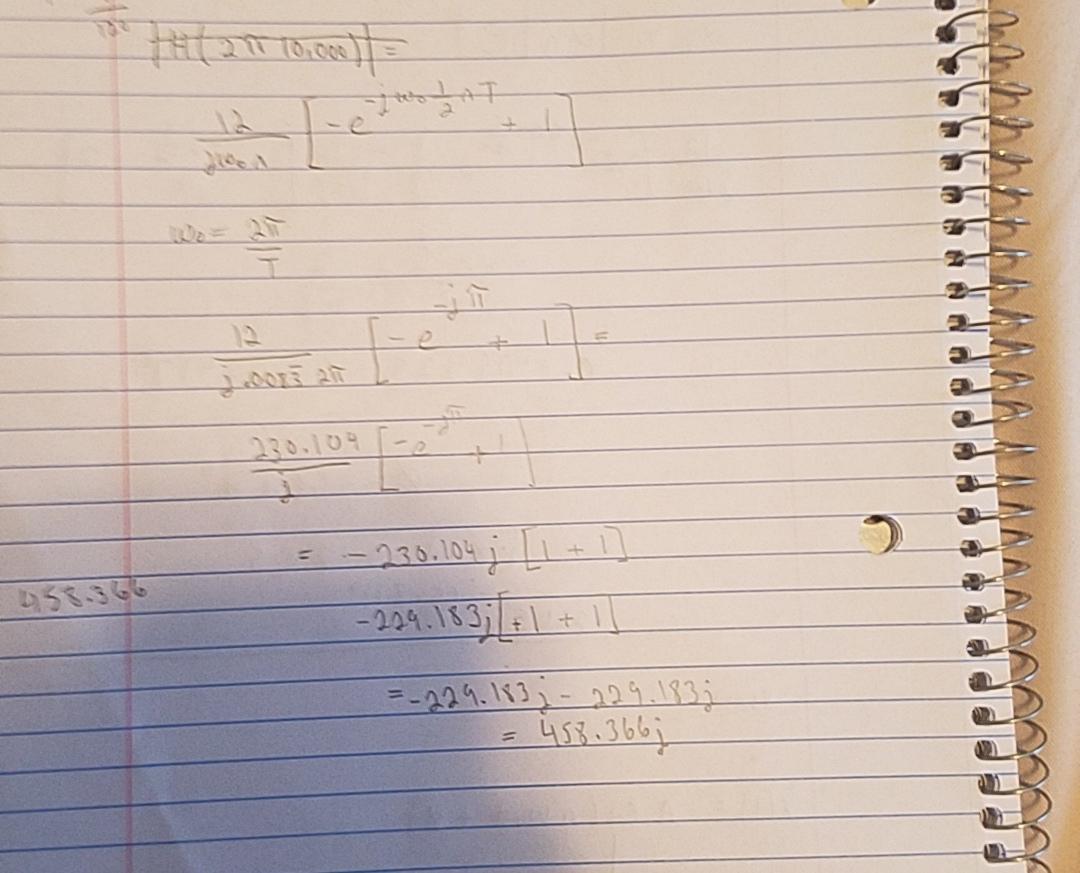 |H(2π 10,000)| =
12/(jω₀n) [-e^(-jω₀ 1/2 nT) + 1]
ω₀ = 2π/T
12/(j.0083̅ 2π) [-e^(-jπ) + 1] =
230.104/j [-e^(-jπ) + 1]
= -230.104j [1 + 1]
458.366
-229.183j[+1 + 1]
= -229.183j - 229.183j
= 458.366j